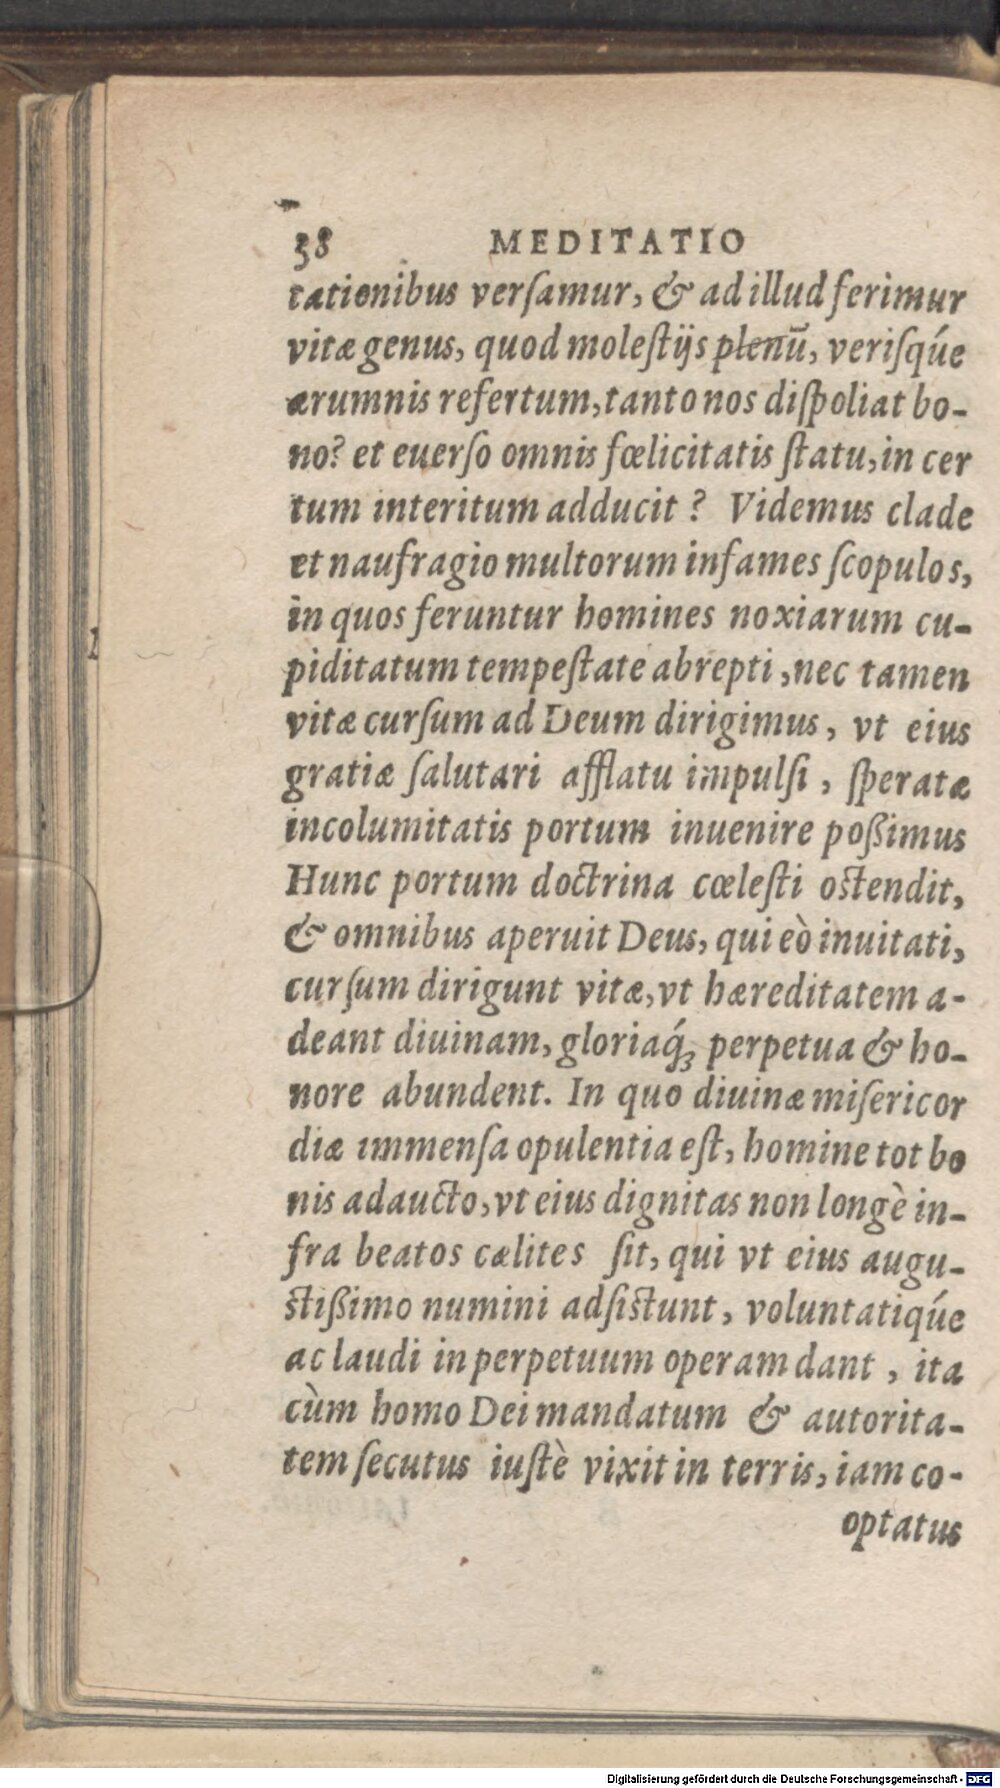 38 MEDITATIO
tationibus verſamur, & ad illud ferimur
vitæ genus, quod moleſtijs plenũ, veriſqúe
ærumnis refertum, tanto nos diſpoliat bo-
no? et euerſo omnis fœlicitatis ſtatu, in cer
tum interitum adducit? Videmus clade
et naufragio multorum infames ſcopulos,
in quos feruntur homines noxiarum cu-
piditatum tempeſtate abrepti, nec tamen
vitæ curſum ad Deum dirigimus, vt eius
gratiæ ſalutari afflatu impulſi, ſperatæ
incolumitatis portum inuenire poßimus
Hunc portum doctrina cœleſti oſtendit,
& omnibus aperuit Deus, qui eò inuitati,
curſum dirigunt vitæ, vt hæreditatem a-
deant diuinam, gloriaq́; perpetua & ho-
nore abundent. In quo diuinæ miſericor
diæ immenſa opulentia eſt, homine tot bo
nis adaucto, vt eius dignitas non longè in-
fra beatos cælites ſit, qui vt eius augu-
ſtißimo numini adſiſtunt, voluntatiqúe
ac laudi in perpetuum operam dant, ita
cùm homo Dei mandatum & autorita-
tem ſecutus iuſtè vixit in terris, iam co-
optatus
Digitalisierung gefördert durch die Deutsche Forschungsgemeinschaft - DFG